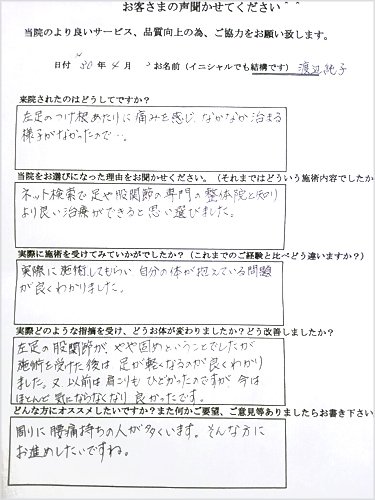 お客さまの声聞かせてください＾＾
当院のより良いサービス、品質向上の為、ご協力をお願い致します。
日付 30年4月 お名前（イニシャルでも結構です）渡辺純子
来院されたのはどうしてですか？
左足のつけ根あたりに痛みを感じなかなか治まる
様子がなかったので…。
当院をお選びになった理由をお聞かせください。（それまではどういう施術内容でしたか
ネット検索で足や股関節の専門の整体院と知り
より良い治療ができると思い選びました。
実際に施術を受けてみていかがでしたか？（これまでのご経験と比べどう違いますか？）
実際に施術してもらい自分の体が抱えている問題
が良くわかりました。
実際どのような指摘を受け、どうお体が変わりましたか？どう改善しましたか？
左足の股関節が、やや固めということでしたが
施術を受けた後は足が軽くなるのが良くわかり
ました。又、以前は肩こりもひどかったのですが今は
ほとんど気にならなくなり良かったです。
どんな方にオススメしたいですか？また何かご要望、ご意見等ありましたらお書き下さい
周りに腰痛持ちの人が多くいます。そんな方に
お進めしたいですね。